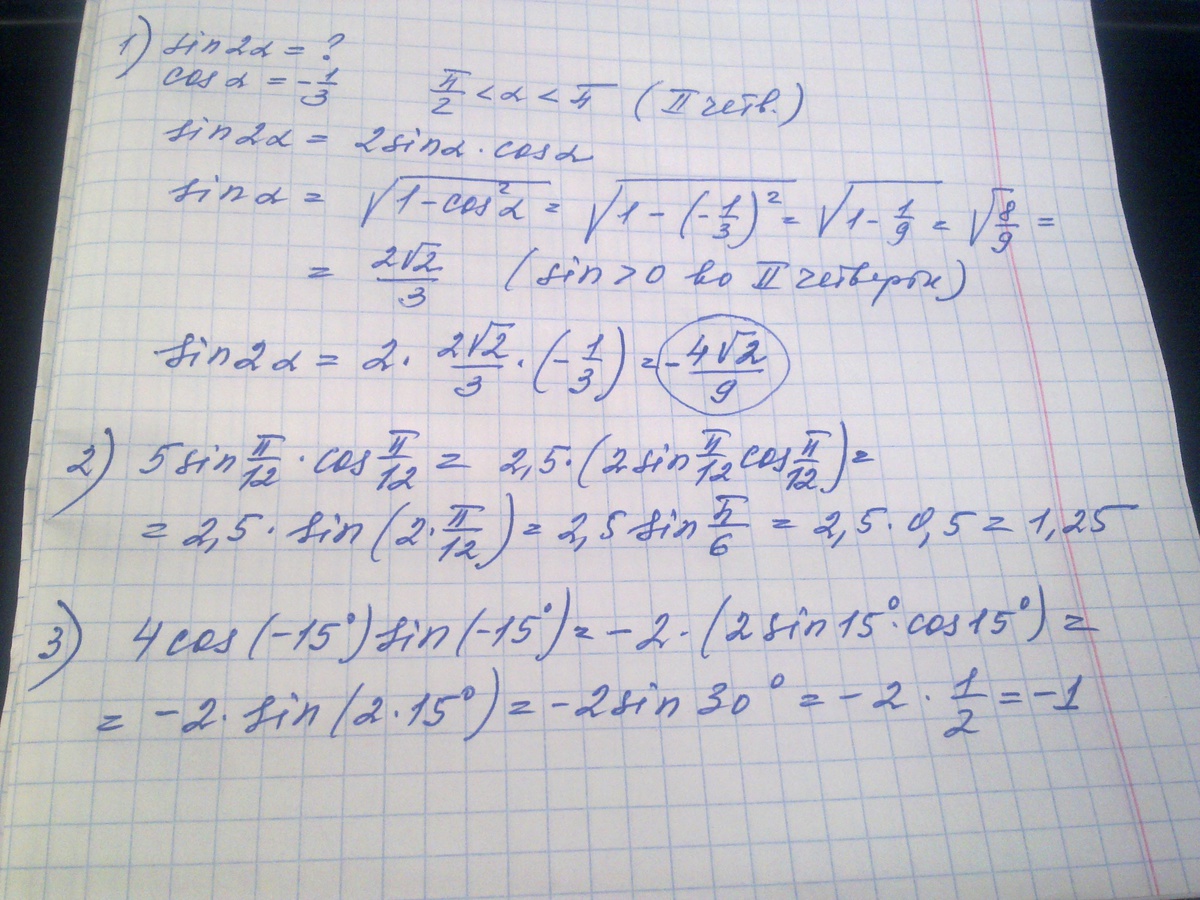 1) sin2α = ?
cosα = -1/3    π/2 < α < π (II четв.)
sin2α = 2sinα · cosα
sinα = √(1-cos²α) = √(1-(-1/3)²) = √(1-1/9) = √(8/9) =
= 2√2/3 (sin>0 во II четверти)
sin2α = 2 · 2√2/3 · (-1/3) = -4√2/9
2) 5sin π/12 · cos π/12 = 2,5·(2sin π/12 cos π/12) =
= 2,5 · sin(2·π/12) = 2,5 sin π/6 = 2,5 · 0,5 = 1,25
3) 4cos(-15°)sin(-15°) = -2·(2sin15°·cos15°) =
= -2· sin(2·15°) = -2sin 30° = -2 · 1/2 = -1